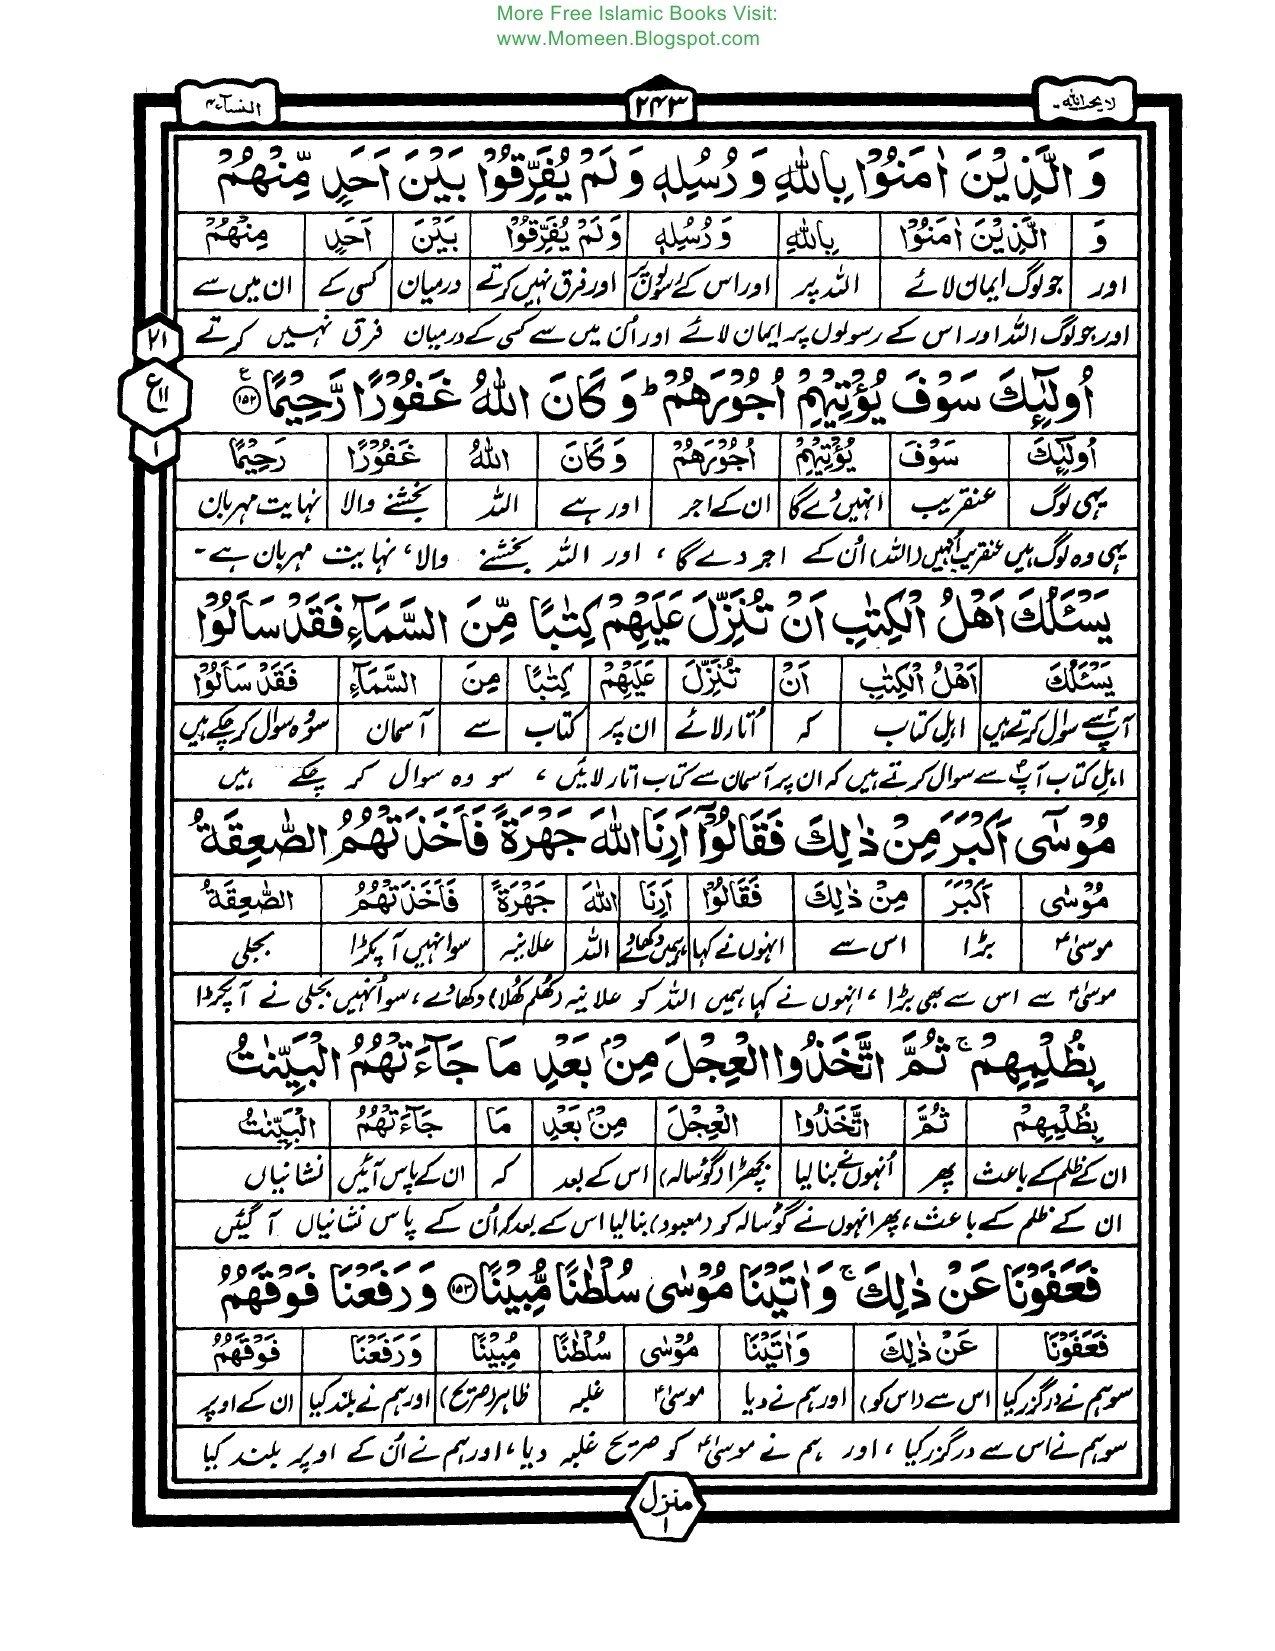 More Free Islamic Books Visit:
www.Momeen.Blogspot.com
لا یحب اللہ ۔
۲۴۳
النساء ۴
وَ الَّذِیْنَ اٰمَنُوْا بِاللّٰهِ وَ رُسُلِهٖ وَ لَمْ یُفَرِّقُوْا بَیْنَ اَحَدٍ مِّنْهُمْ
وَ الَّذِیْنَ اٰمَنُوْا بِاللّٰهِ وَ رُسُلِهٖ وَ لَمْ یُفَرِّقُوْا بَیْنَ اَحَدٍ مِنْهُمْ
اور جو لوگ ایمان لائے اللہ پر اور اس کے رسولوں پر اور فرق نہیں کرتے درمیان کسی کے ان میں سے
اور جو لوگ اللہ اور اس کے رسولوں پر ایمان لائے اور اُن میں سے کسی کے درمیان فرق نہیں کرتے
۲۱
ع ۱۱
۱
اُولٰٓئِكَ سَوْفَ یُؤْتِیْهِمْ اُجُوْرَهُمْ ؕ وَ كَانَ اللّٰهُ غَفُوْرًا رَّحِیْمًا ۱۵۲ ع
اُولٰٓئِكَ سَوْفَ یُؤْتِیْهِمْ اُجُوْرَهُمْ وَ كَانَ اللّٰهُ غَفُوْرًا رَحِیْمًا
یہی لوگ عنقریب انہیں دے گا ان کے اجر اور ہے اللہ بخشنے والا نہایت مہربان
یہی وہ لوگ ہیں عنقریب اُنہیں (اللہ) اُن کے اجر دے گا، اور اللہ بخشنے والا، نہایت مہربان ہے ۔
یَسْـَٔلُكَ اَهْلُ الْكِتٰبِ اَنْ تُنَزِّلَ عَلَیْهِمْ كِتٰبًا مِّنَ السَّمَآءِ فَقَدْ سَاَلُوْا
یَسْـَٔلُكَ اَهْلُ الْكِتٰبِ اَنْ تُنَزِّلَ عَلَیْهِمْ كِتٰبًا مِنَ السَّمَآءِ فَقَدْ سَاَلُوْا
آپؐ سے سوال کرتے ہیں اہلِ کتاب کہ اُتار لائے ان پر کتاب سے آسمان سو وہ سوال کرچکے ہیں
اہلِ کتاب آپؐ سے سوال کرتے ہیں کہ ان پر آسمان سے کتاب اتار لائیں، سو وہ سوال کر چکے ہیں
مُوْسٰۤی اَكْبَرَ مِنْ ذٰلِكَ فَقَالُوْۤا اَرِنَا اللّٰهَ جَهْرَةً فَاَخَذَتْهُمُ الصّٰعِقَةُ
مُوْسٰۤی اَكْبَرَ مِنْ ذٰلِكَ فَقَالُوْۤا اَرِنَا اللّٰهَ جَهْرَةً فَاَخَذَتْهُمُ الصّٰعِقَةُ
موسیٰؑ بڑا اس سے انہوں نے کہا ہمیں دکھا دے اللہ علانیہ سو انہیں آ پکڑا بجلی
موسیٰؑ سے اس سے بھی بڑا، انہوں نے کہا ہمیں اللہ کو علانیہ (کھلم کھلا) دکھا دے، سو اُنہیں بجلی نے آ پکڑا
بِظُلْمِهِمْ ۚ ثُمَّ اتَّخَذُوا الْعِجْلَ مِنْۢ بَعْدِ مَا جَآءَتْهُمُ الْبَیِّنٰتُ
بِظُلْمِهِمْ ثُمَّ اتَّخَذُوا الْعِجْلَ مِنْۢ بَعْدِ مَا جَآءَتْهُمُ الْبَیِّنٰتُ
ان کے ظلم کے باعث پھر اُنہوں نے بنا لیا بچھڑا (گؤسالہ) اس کے بعد کہ ان کے پاس آئیں نشانیاں
ان کے ظلم کے باعث، پھر انہوں نے گؤسالہ کو (معبود) بنا لیا اس کے بعد کہ اُن کے پاس نشانیاں آ گئیں
فَعَفَوْنَا عَنْ ذٰلِكَ ۚ وَ اٰتَیْنَا مُوْسٰی سُلْطٰنًا مُّبِیْنًا ۱۵۳ وَ رَفَعْنَا فَوْقَهُمُ
فَعَفَوْنَا عَنْ ذٰلِكَ وَ اٰتَیْنَا مُوْسٰی سُلْطٰنًا مُبِیْنًا وَ رَفَعْنَا فَوْقَهُمُ
سو ہم نے درگزر کیا اس سے (اس کو) اور ہم نے دیا موسیٰؑ غلبہ ظاہر (صریح) اور ہم نے بلند کیا ان کے اوپر
سو ہم نے اس سے درگزر کیا، اور ہم نے موسیٰؑ کو صریح غلبہ دیا، اور ہم نے اُن کے اوپر بلند کیا
منزل ۱